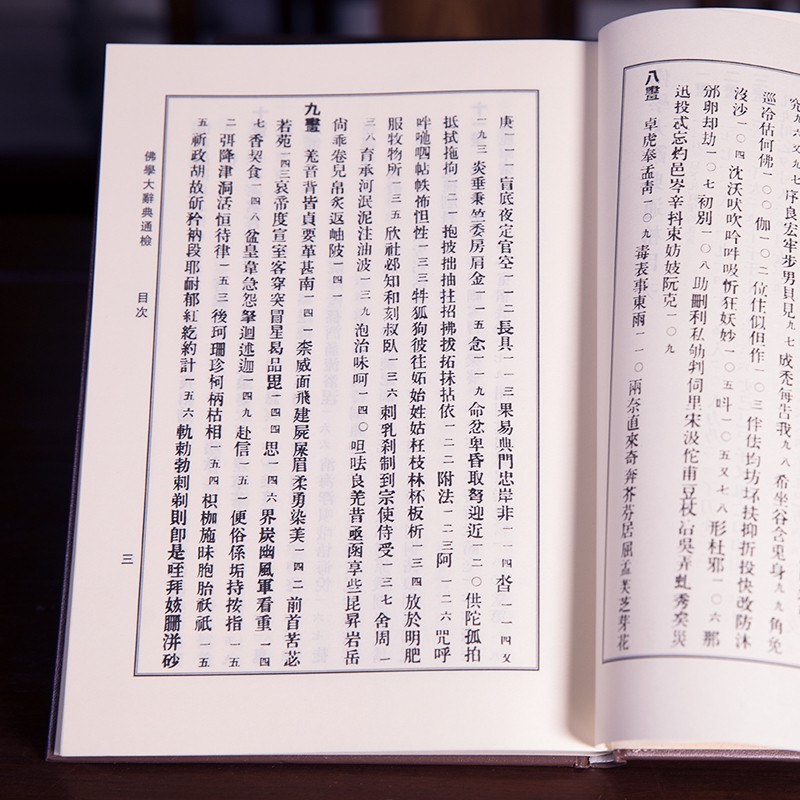 究九六又九七序良宏牢步男貝見九七成禿每告我九八希坐谷含兎身九九角免
巡冷估何佛一〇〇伽一〇二位住似但作一〇三伴佉均坊坏扶抑折投快改防沐
沒沙一〇四沈沃吠吹吟吽吸忻狂妖妙一〇五呌一〇五又七八形杜邪一〇六那
邠卵却劫一〇七初別一〇八助刪利私劬判伺里宋汲佗甫豆杖沾吳弄虬秀矣災
迅投忒忘灼邑岑辛抖束妨妓阮克一〇九
八畫 卓虎奉孟靑一〇九毒表事東雨一一〇兩奈直來奇奔芥芬居屈孟芙芝芽花
庚一一一盲底夜定官空一一二長具一一三果易典門忠岸非一一四沓一一四又
一九三炎垂秉竺委房肩金一一五念一一九命忿卑昏取弩迎近一二〇供陀孤拍
抵拭拖拘一二一抱披拙抽拄招拂拔拓抹拈依一二二附法一二三阿一二六咒呼
吽咃呬帖帙怖怛性一三三牪狐狗彼往妬始姓姑枉枝林杯板析一三四放於明肥
服牧物所一三五欣社邲知和刻叔臥一三六刺乳刹制到宗使侍受一三七舍周一
三八育承河泯泥注油波一三九泡治味呵一四〇呾呿良羌昔亟函享些昆昇岩岳
尙乖卷兒帛炙返岫陂一四一
九畫 羗音背皆貞要革甚南一四一柰威面飛建屍屎眉柔勇染美一四二前首苦苾
若苑一四三哀帝度宣室客穿突冒星曷品毘一四四思一四六界炭幽風軍看重一四
七香契食一四八盆皇韋急怨拏迴述迦一四九赴信一五一便俗係垢持按指一五
二弭降津洞活恒待律一五三後珂珊珍柯柄枯相一五四枳枷施昧胞胎祅祇一五
五祈政胡故斫矜衲段耶耐郁紅紇約計一五六軌勅勃剌剃則卽是咥拜姟胼洴砂
佛學大辭典通檢 目次
三